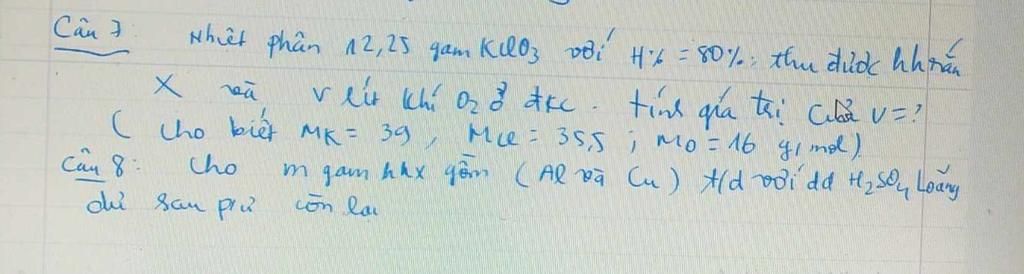 Câu 7 Nhiệt phân 12,25 gam KClO3 với H% = 80%; thu được hh rắn
X và V lít khí O2 ở đkc. Tính giá trị của V=?
( Cho biết MK = 39, MCl = 35,5 ; MO = 16 g/mol)
Câu 8: Cho m gam hhx gồm (Al và Cu) t/d với dd H2SO4 loãng
dư sau pư còn lại